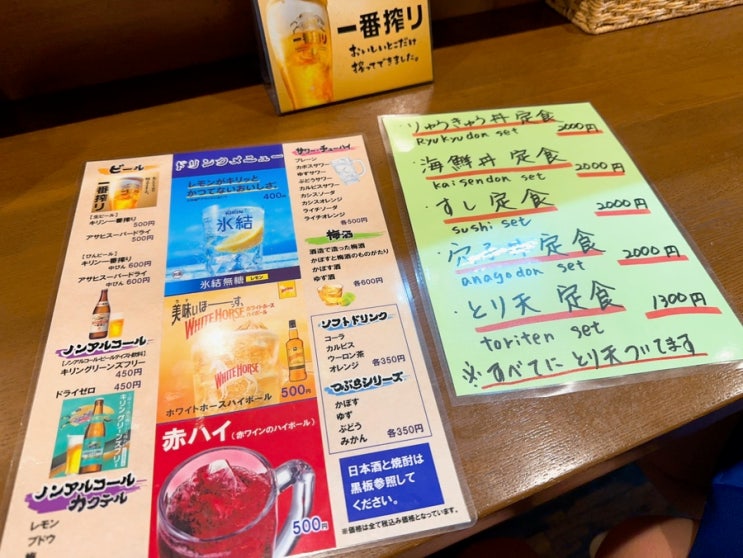 一番搾り
おいしいとこだけ
搾ってできました。
ビール
一番搾り
[生ビール]
キリン一番搾り
500円
アサヒスーパードライ
500円
[びんビール]
キリン一番搾り
中びん 600円
アサヒスーパードライ
中びん 600円
ノンアルコール
[ノンアルコール・ビールテイスト飲料]
キリングリーンズフリー
450円
ドライゼロ 450円
キリン グリーンズフリー
ノンアルコール
カクテル
レモン
ブドウ
梅
ドリンクメニュー
レモンがキリッと
かつてないおいしさ。
400円
KIRIN
氷結
氷結無糖 レモン
美味いほーっす。
WHITE HORSE
ホワイトホース
ハイボール
WHITE HORSE
ホワイトホースハイボール
500円
赤ハイ(赤ワインのハイボール)
500円
サワー・チューハイ
プレーン
カボスサワー
ゆずサワー
ぶどうサワー
カルピスサワー
カシスソーダ
カシスオレンジ
ライチソーダ
ライチオレンジ
各500円
梅酒
酒流で造った梅酒
かぼすと梅酒のものがたり
かぼす酒
ゆず酒
各600円
ソフトドリンク
コーラ
カルピス
ウーロン茶
オレンジ 各350円
つぶらシリーズ
かぼす
ゆず
ぶどう
みかん 各350円
日本酒と焼酎は
黒板参照して
ください。
※価格は全て税込み価格となっています。
・りゅうきゅう丼 定食
Ryukyudon set 2000円
・海鮮丼 定食
kaisendon set 2000円
・すし定食
sushi set 2000円
・穴子丼定食
anagodon set 2000円
・とり天 定食 1300円
toriten set
※すべてにとり天ついてます